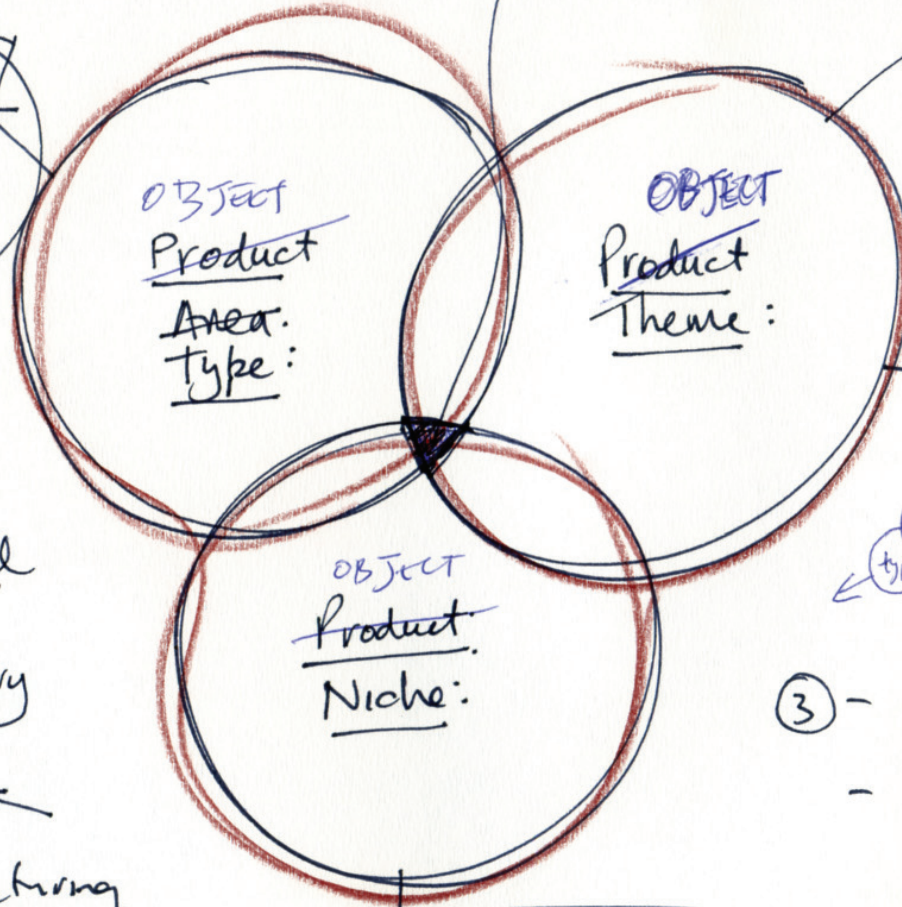 OBJECT
Product
Area.
Type:
OBJECT
Product
Theme:
OBJECT
Product
Niche:
3 -
-